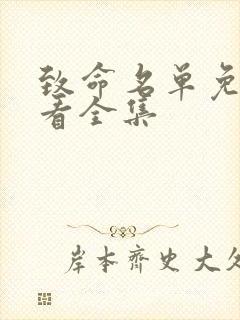 致命名单免
看全集
岸本齐史大久